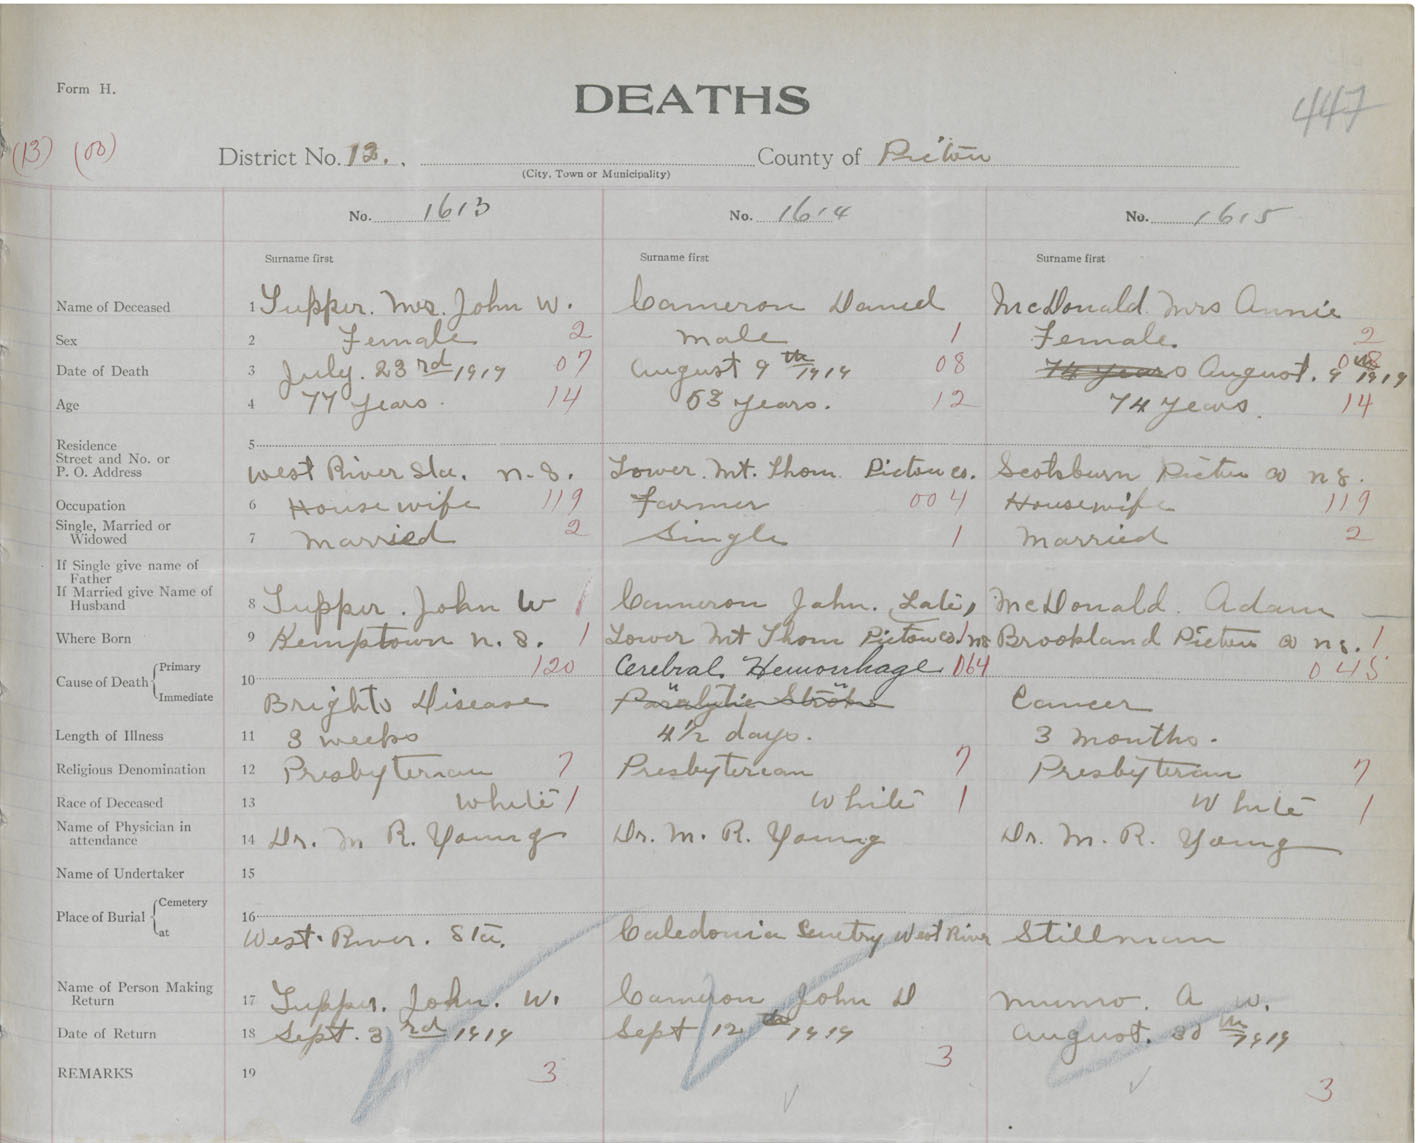 Form H.
DEATHS
447
(13) (00)
District No. 13. County of Pictou
(City, Town or Municipality)
No. 1613 No. 1614 No. 1615
Surname first Surname first Surname first
Name of Deceased 1 Tupper. Mrs. John W. Cameron Daniel McDonald Mrs Annie
Sex 2 Female 2 Male 1 Female. 2
Date of Death 3 July. 23rd 1919 07 August 9th 1919 08 74 years August. 9th 1919 08
Age 4 77 years. 14 63 years. 12 74 years. 14
Residence 5
Street and No. or
P. O. Address West River Sta. N.S. Lower Mt. Thom Pictou Co. Scotsburn Pictou Co N S.
Occupation 6 Housewife 119 Farmer 004 Housewife 119
Single, Married or
Widowed 7 Married 2 Single 1 Married 2
If Single give name of
Father
If Married give Name of
Husband 8 Tupper. John W 1 Cameron John. (Late) McDonald. Adam
Where Born 9 Kemptown N.S. 1 Lower Mt Thom Pictou Co. 1 NS Brookland Pictou Co N S. 1
Cause of Death Primary 10 120 Cerebral Hemorrhage 064 045
Immediate Brights Disease Paralytic Stroke Cancer
Length of Illness 11 3 weeks 4 1/2 days. 3 months.
Religious Denomination 12 Presbyterian 7 Presbyterian 7 Presbyterian 7
Race of Deceased 13 White 1 White 1 White 1
Name of Physician in
attendance 14 Dr. M R. Young Dr. M. R. Young Dr. M. R. Young
Name of Undertaker 15
Place of Burial Cemetery 16
at West River. Sta. Caledonia Cemetry West River Stillman
Name of Person Making
Return 17 Tupper. John. W. Cameron John D Munro. A W.
Date of Return 18 Sept. 3rd 1919 Sept 12th 1919 August. 30th 1919
REMARKS 19 3 3 3